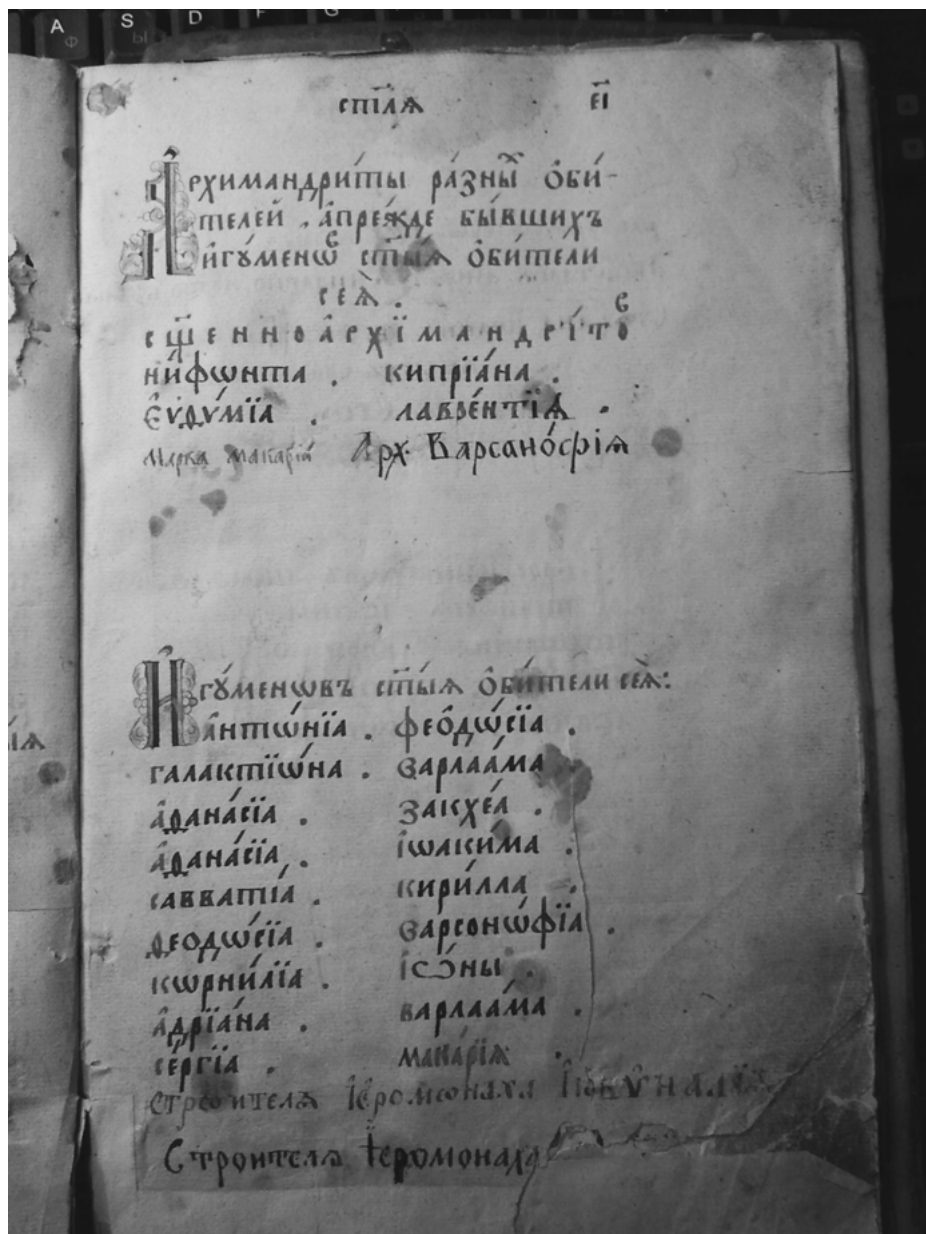 A S D F G
Ф Ы
ст҃ла҃я е҃і
А҆рхимандри́ты ра́зныⷯ ѻ҆би́-
телей . а҆пре́жде бы́вшихъ
и҆гꙋ́менѡⷡ ст҃ы́ѧ ѻ҆би́тели
сеѧ̀ .
сщ҃енноа҆рхїмандрі́тоⷡ
ни́фѡнта . кипрїа́на .
є҆ѵѳѵ́мїа . лавре́нтїѧ .
Марка макарїй Арх Варсано́фіѧ
И҆гꙋ́менѡвъ ст҃ы́ѧ ѻ҆би́тели сеѧ̀:
а҆нтѡ́нїа . феѻдѡ́сїа .
галактїѡ́на . варлаа́ма
а҆ѳана́сїа . закхе́а .
а҆ѳана́сїа . і҆ѡаки́ма .
савватїа́ . кири́лла .
ѳеодѡ́сїа . варсонѡ́фїа .
кѡрни́лїа . і҆ѡ́ны .
а҆дрїа́на . варлаа́ма .
се́ргїа . мака́рїѧ .
строителѧ Іеромонаха
Строителѧ Іеромонаха